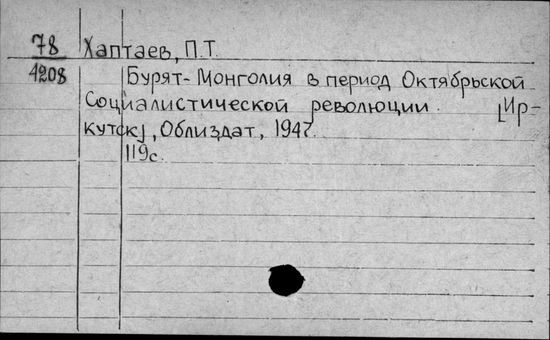 78 Хаптаев, П.Т.
4208 Бурят-Монголия в период Октябрьской
Социалистической революции. [Ир-
кутск], Облиздат, 1947.
119с.